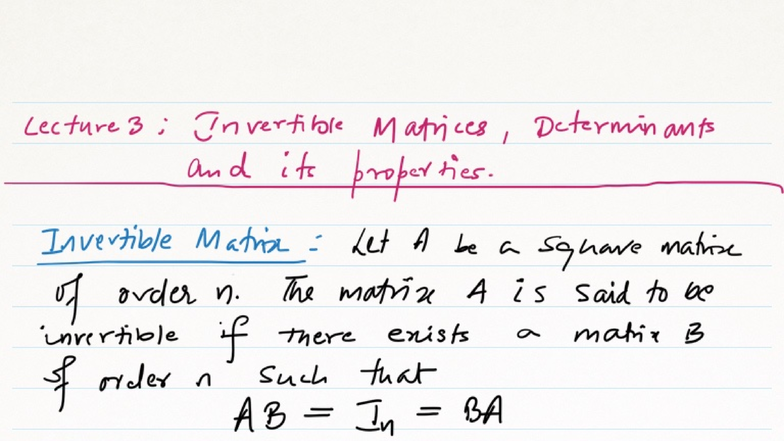 Lecture 3 : Invertible Matrices, Determinants
and its properties.
Invertible Matrix : Let A be a square matrix
of order n. The matrix A is said to be
invertible if there exists a matrix B
of order n such that
AB = Iₙ = BA